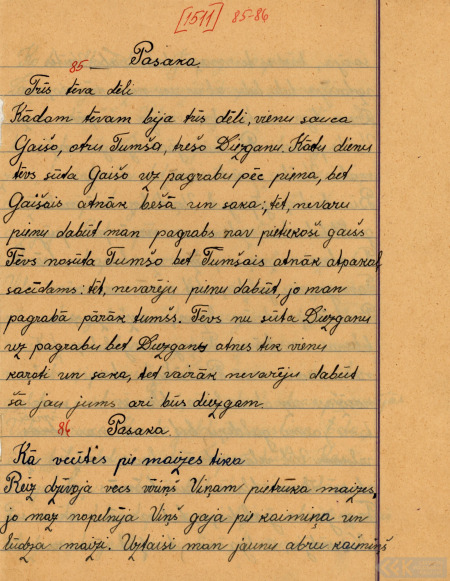 [1511] 85-86
85 Pasaka.
Trīs tēva dēli
Kādam tēvam bija trīs dēli, vienu sauca
Gaišo, otru Tumša, trešo Diezganu. Kātu dienu
tēvs sūta Gaišo uz pagrabu pēc piena, bet
Gaišais atnāk bešā un saka:, tēt, nevaru
pienu dabūt man pagrabs nav pietiekoši gaišs
Tēvs nosūta Tumšo bet Tumšais atnāk atpakaļ
sacīdams: tēt, nevarēju pienu dabūt, jo man
pagrabā pārāk tumšs. Tēvs nu sūta Diezganu
uz pagrabu bet Diezgans atnes tik vienu
karoti un saka, tet vairāk nevarēju dabūt
šā jau jums ari būs diezgam.
86 Pasaka.
Kā vecītēs pie maizes tika
Reiz dzīvoja vecs vīriņš Viņam pietrūka maizes,
jo maz nopelnīja Viņš gaja pie kaimiņa un
lūdza maizi. Uztaisi man jaunu abru kaimiņš